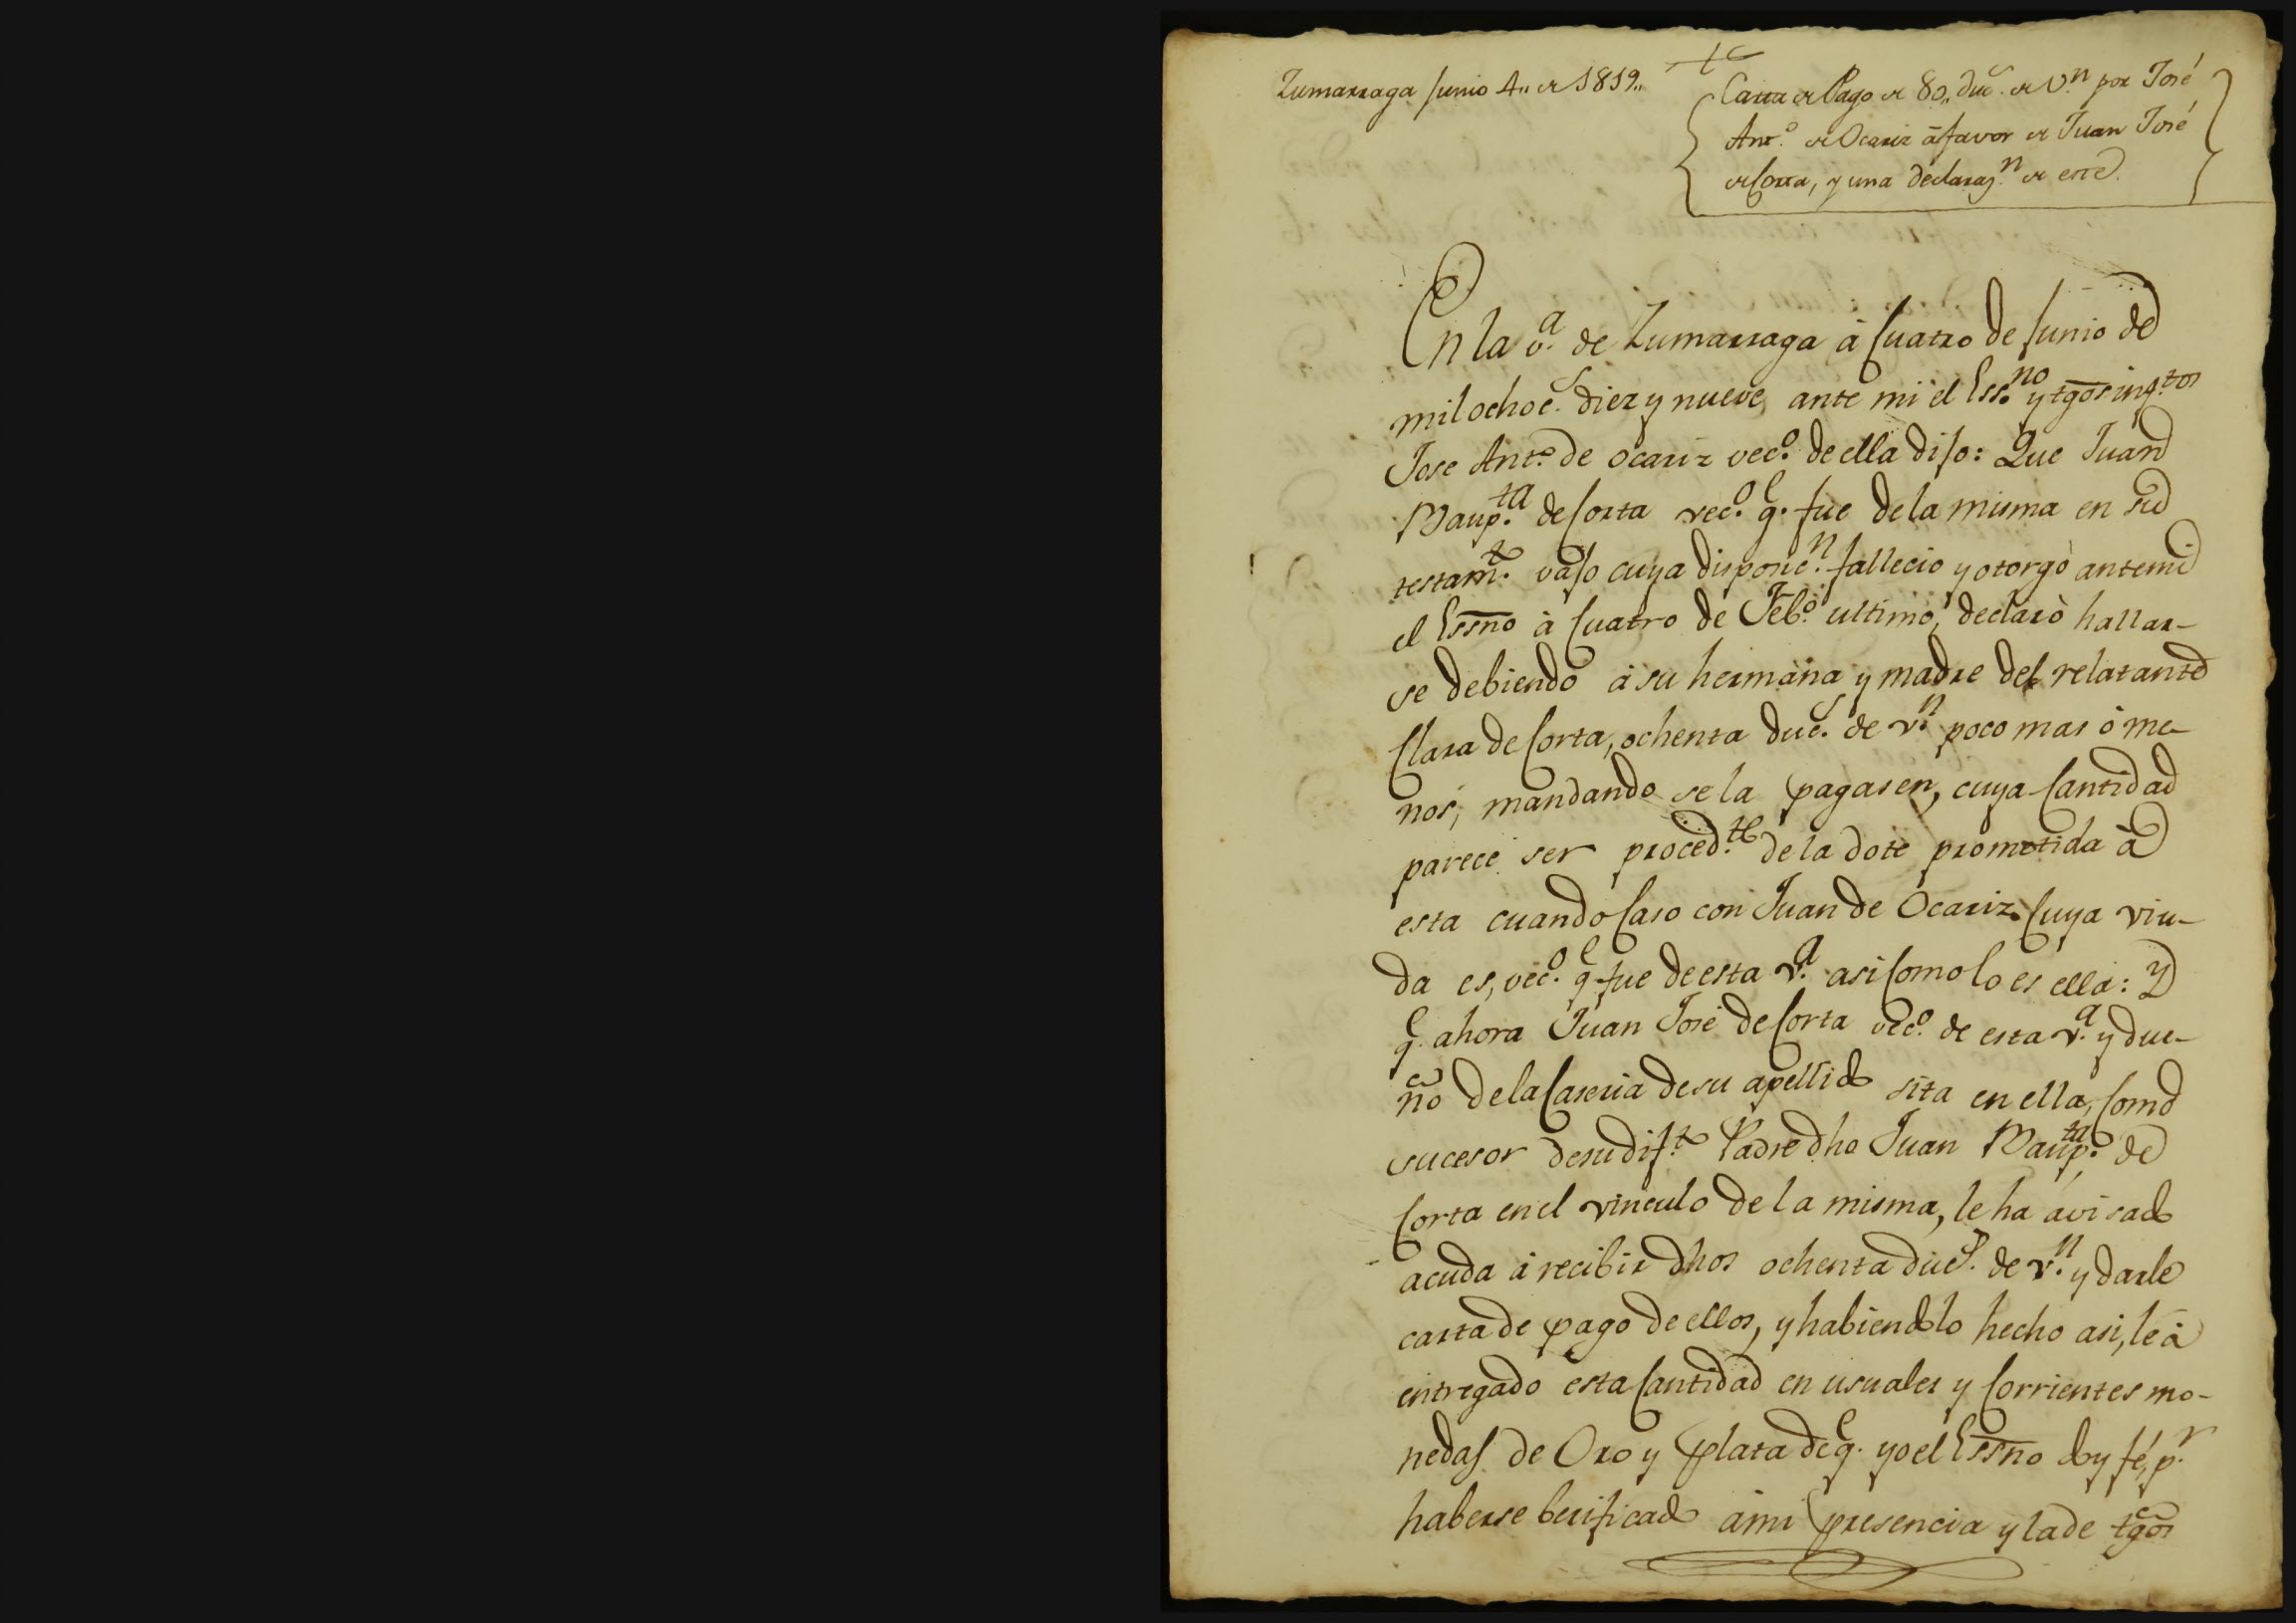 Zumarraga Junio 4,, de 1819,,
Carta de Pago de 80,, duc.s de V.n por José
Ant.o de Ocariz á favor de Juan José
de Corta, y una declaraz.n de este.
En la v.a de Zumarraga à Cuatro de Junio de
mil ochoc.s diez y nueve, ante mi el Ess.no y tgos ing.tos
Jose Ant.o de Ocariz vec.o de ella dijo: Que Juan
Baup.ta de Corta vec.o q.e fue de la misma en su
testam.to vajo cuya disposic.n fallecio y otorgò ante mi
el Essno à Cuatro de Feb.o ultimo, declarò hallar-
se debiendo à su hermana y madre del relatante
Clara de Corta, ochenta duc.s de v.n poco mas ò me-
nos, mandando se la pagasen, cuya Cantidad
parece ser proced.te de la dote prometida à
esta cuando Caso con Juan de Ocariz Cuya viu-
da es, vec.o q.e fue de esta v.a asi Como lo es ella: Y
q.e ahora Juan José de Corta vec.o de esta v.a y due-
ño de la Caseria de su apellido sita en ella, Como
sucesor de su dif.to Padre dho Juan Baup.ta de
Corta en el vinculo de la misma, le ha avisado
acuda à recibir dhos ochenta duc.s de v.n y darle
carta de pago de ellos, y habiendolo hecho asi, le à
entregado esta Cantidad en usuales y Corrientes mo-
nedas de Oro y plata de q.e yo el Essno doy fé, p.r
haberse berificado à mi presencia y la de tgos